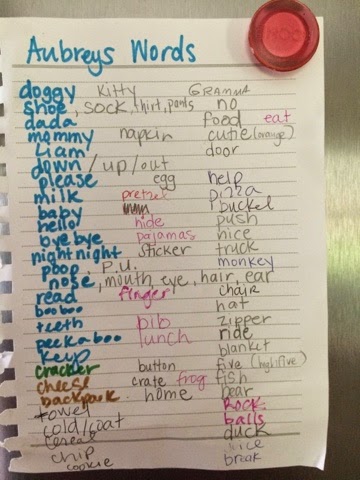 Aubreys Words
doggy Kitty GRAMMA
shoe, sock, shirt, pants no
dada food eat
mommy napkin cutie (orange)
Liam door
down/up/out
please egg help
milk pretzel pizza
baby bucket
hello hide push
bye bye pajamas nice
night night sticker truck
poop, P.U. monkey
nose, mouth, eye, hair, ear
read finger chair
booboo hat
teeth bib zipper
peekaboo lunch ride
keys blanket
cracker button five (high five)
cheese crate frog fish
backpack home bear
towel Rock
cold/coat balls
cereal duck
chip juice
cookie break